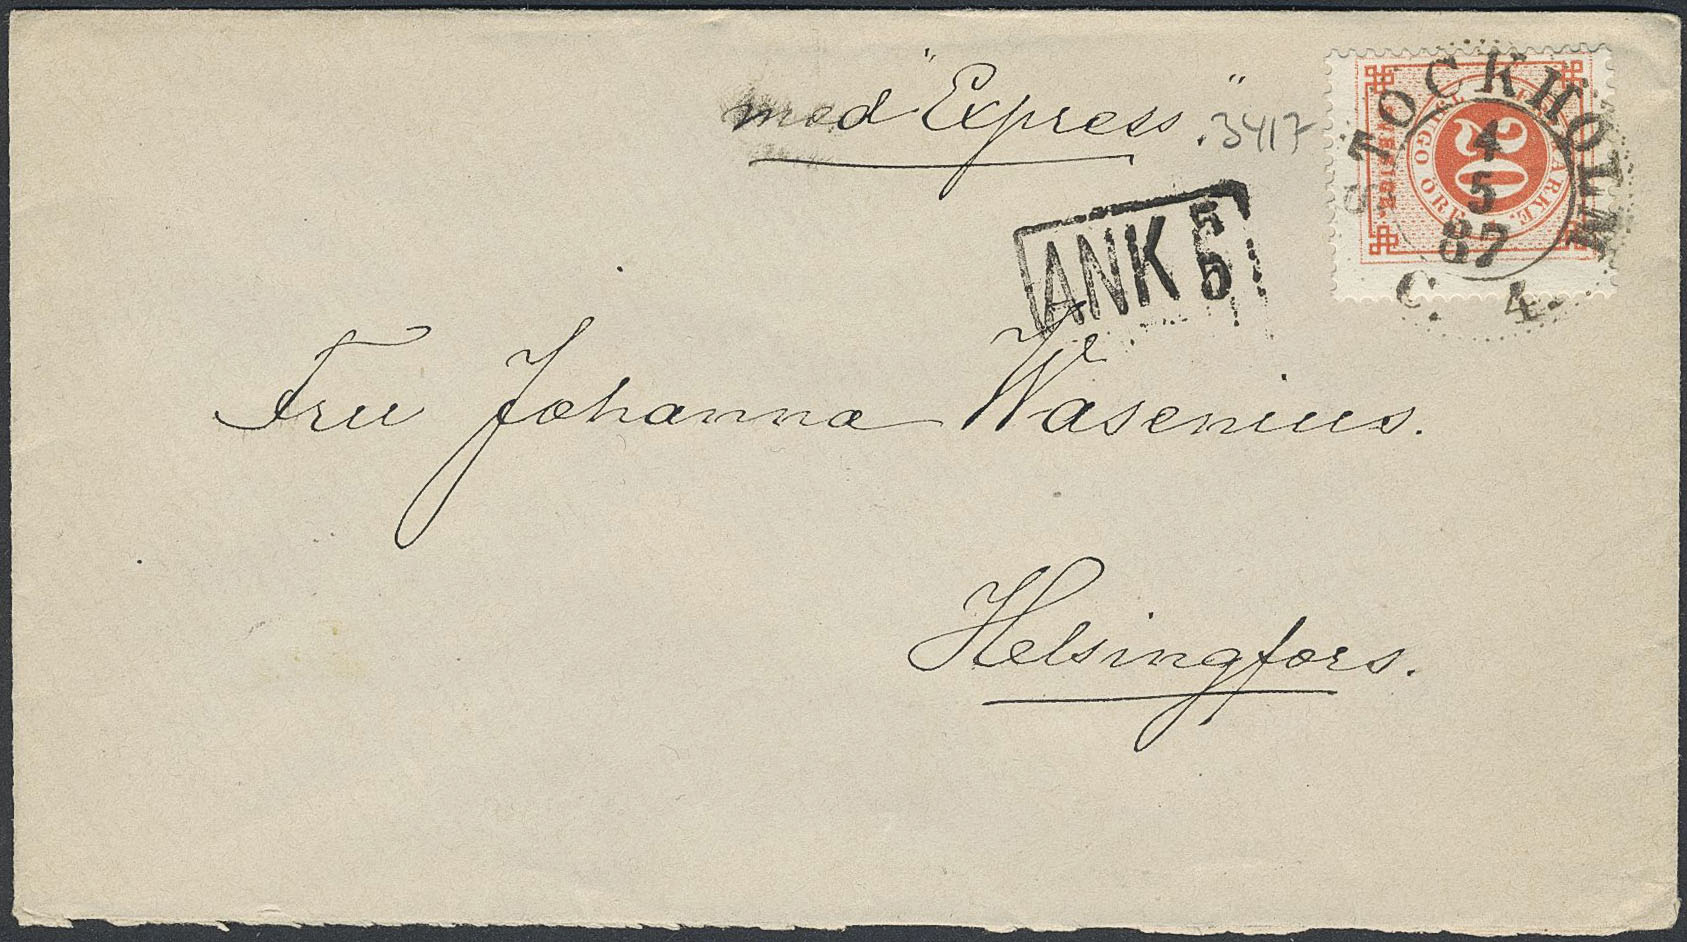 med "Express"
.3417
STOCKHOLM
4
5
87
C. 4.
20
TJUGO ÖRE
SVERIGE
ANK 5
5
Fru Johanna Wasenius.
Helsingfors.